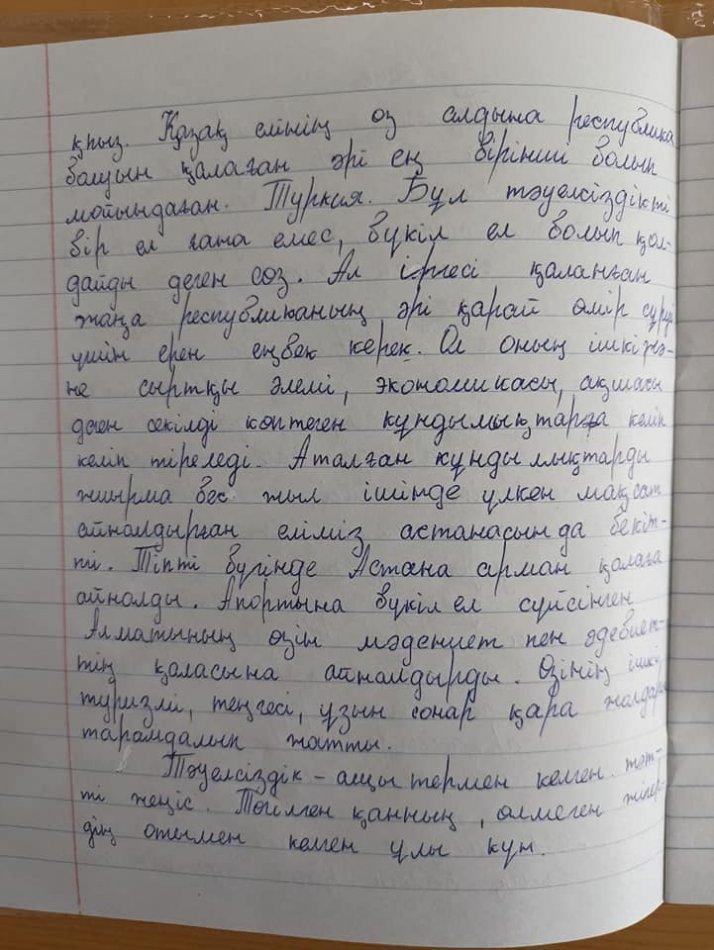 қпыз. Қазақ елінің өз алдына республика
болуын қалаған әрі ең бірінші болып
мойындаған. Туркия. Бұл тәуелсіздікті
бір ел ғана емес, бүкіл ел болып қол-
дайды деген соз. Ал іргесі қаланған
жаңа республиканың әрі қарай өмір сүруі
үшін ерен еңбек керек. Ол оның ішкі жә-
не сыртқы әлемі, экономикасы, ақшасы
деген секілді көптеген құндылықтарға келіп
келіп тіреледі. Аталған құндылықтарды
жиырма бес жыл ішінде үлкен мақсат
айналдырған еліміз астанасын да бекіт-
ті. Тіпті бүгінде Астана арман қалаға
айналды. Апортына бүкіл ел сүйсінген
Алматының өзін мәдениет пен әдебиет-
тің қаласына айналдырды. Өзінің ішкі
туризмі, теңгесі, ұзын сонар қара жолдары
тарамдалып жатты.
Тәуелсіздік - ащы термен келген тәт-
ті жеңіс. Төгілген қанның, өлмеген жігер-
дің отымен келген ұлы күн.